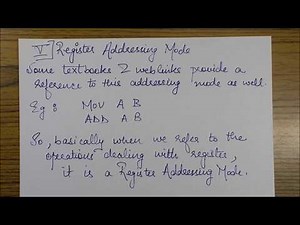 V Register Addressing Mode
Some textbooks & weblinks provide a
reference to this addressing mode as well.
Eg: MOV A B
ADD A B
So, basically when we refer to the
operations dealing with register,
it is a Register Addressing Mode.